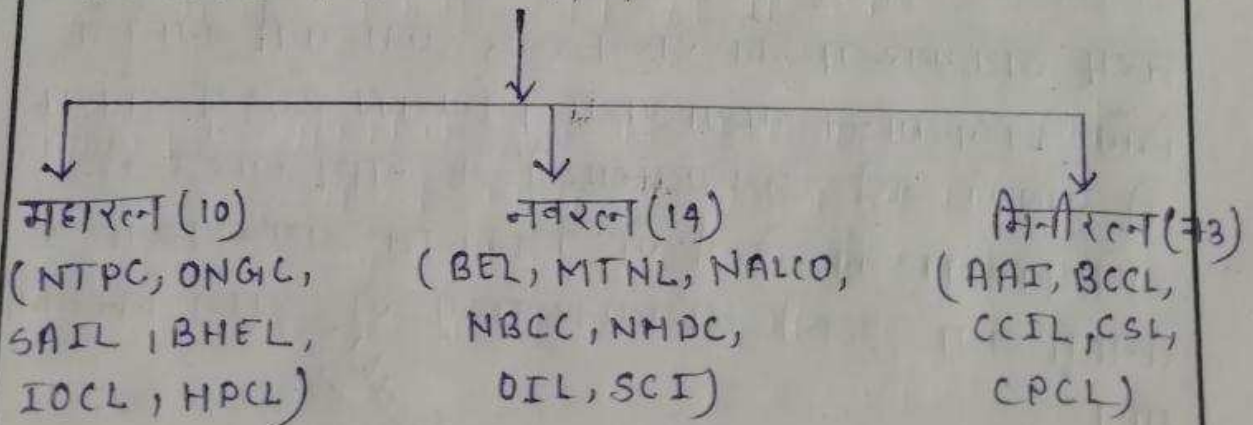 महारत्न (10)
(NTPC, ONGC,
SAIL, BHEL,
IOCL, HPCL)
नवरत्न (14)
(BEL, MTNL, NALCO,
NBCC, NMDC,
OIL, SCI)
मिनीरत्न (73)
(AAI, BCCL,
CCIL, CSL,
CPCL)